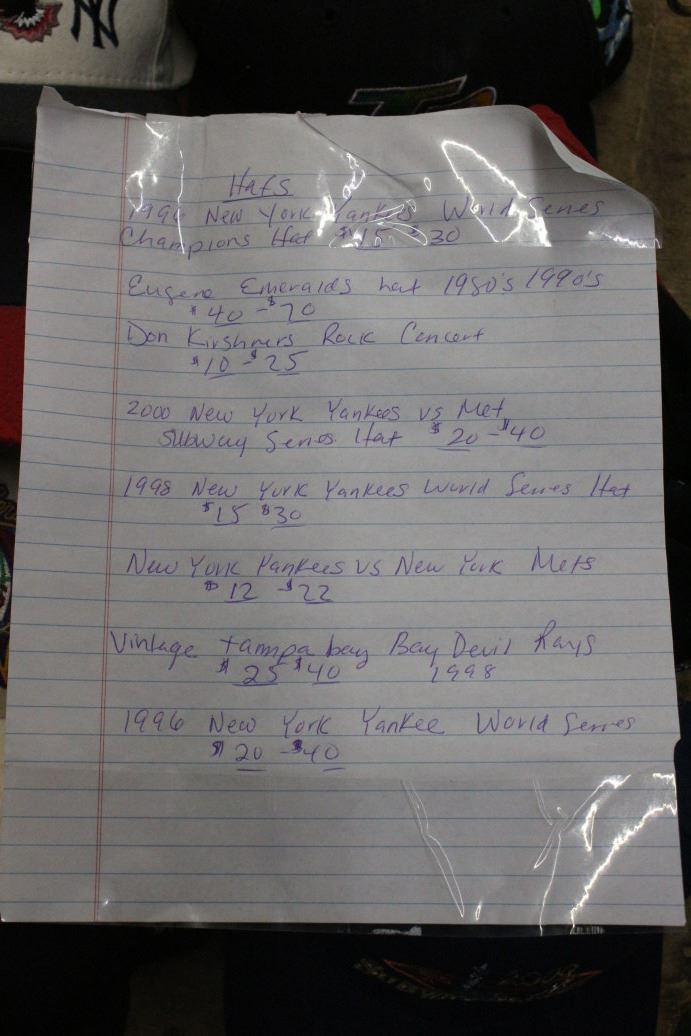 NY
Hats
1996 New York Yankees World Series
Champions Hat $15 $30
Eugene Emeralds hat 1980's 1990's
$40 - $70
Don Kirshners Rock Concert
$10 - $25
2000 New York Yankees vs Met
Subway Series Hat $20 - $40
1998 New York Yankees World Series Hat
$15 $30
New York Yankees vs New York Mets
$12 - $22
Vintage tampa bay Bay Devil Rays
$25 $40 1998
1996 New York Yankee World Series
$20 - $40